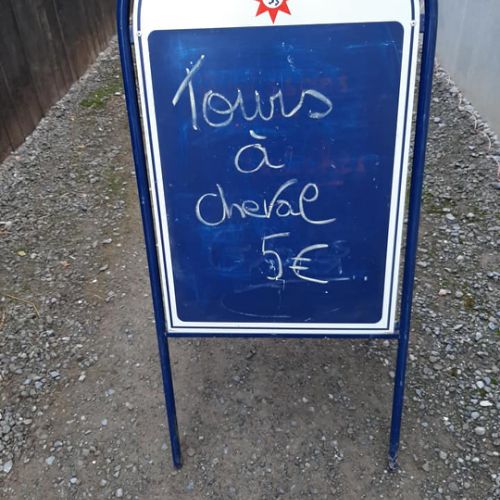 Tours
à
cheval
5€